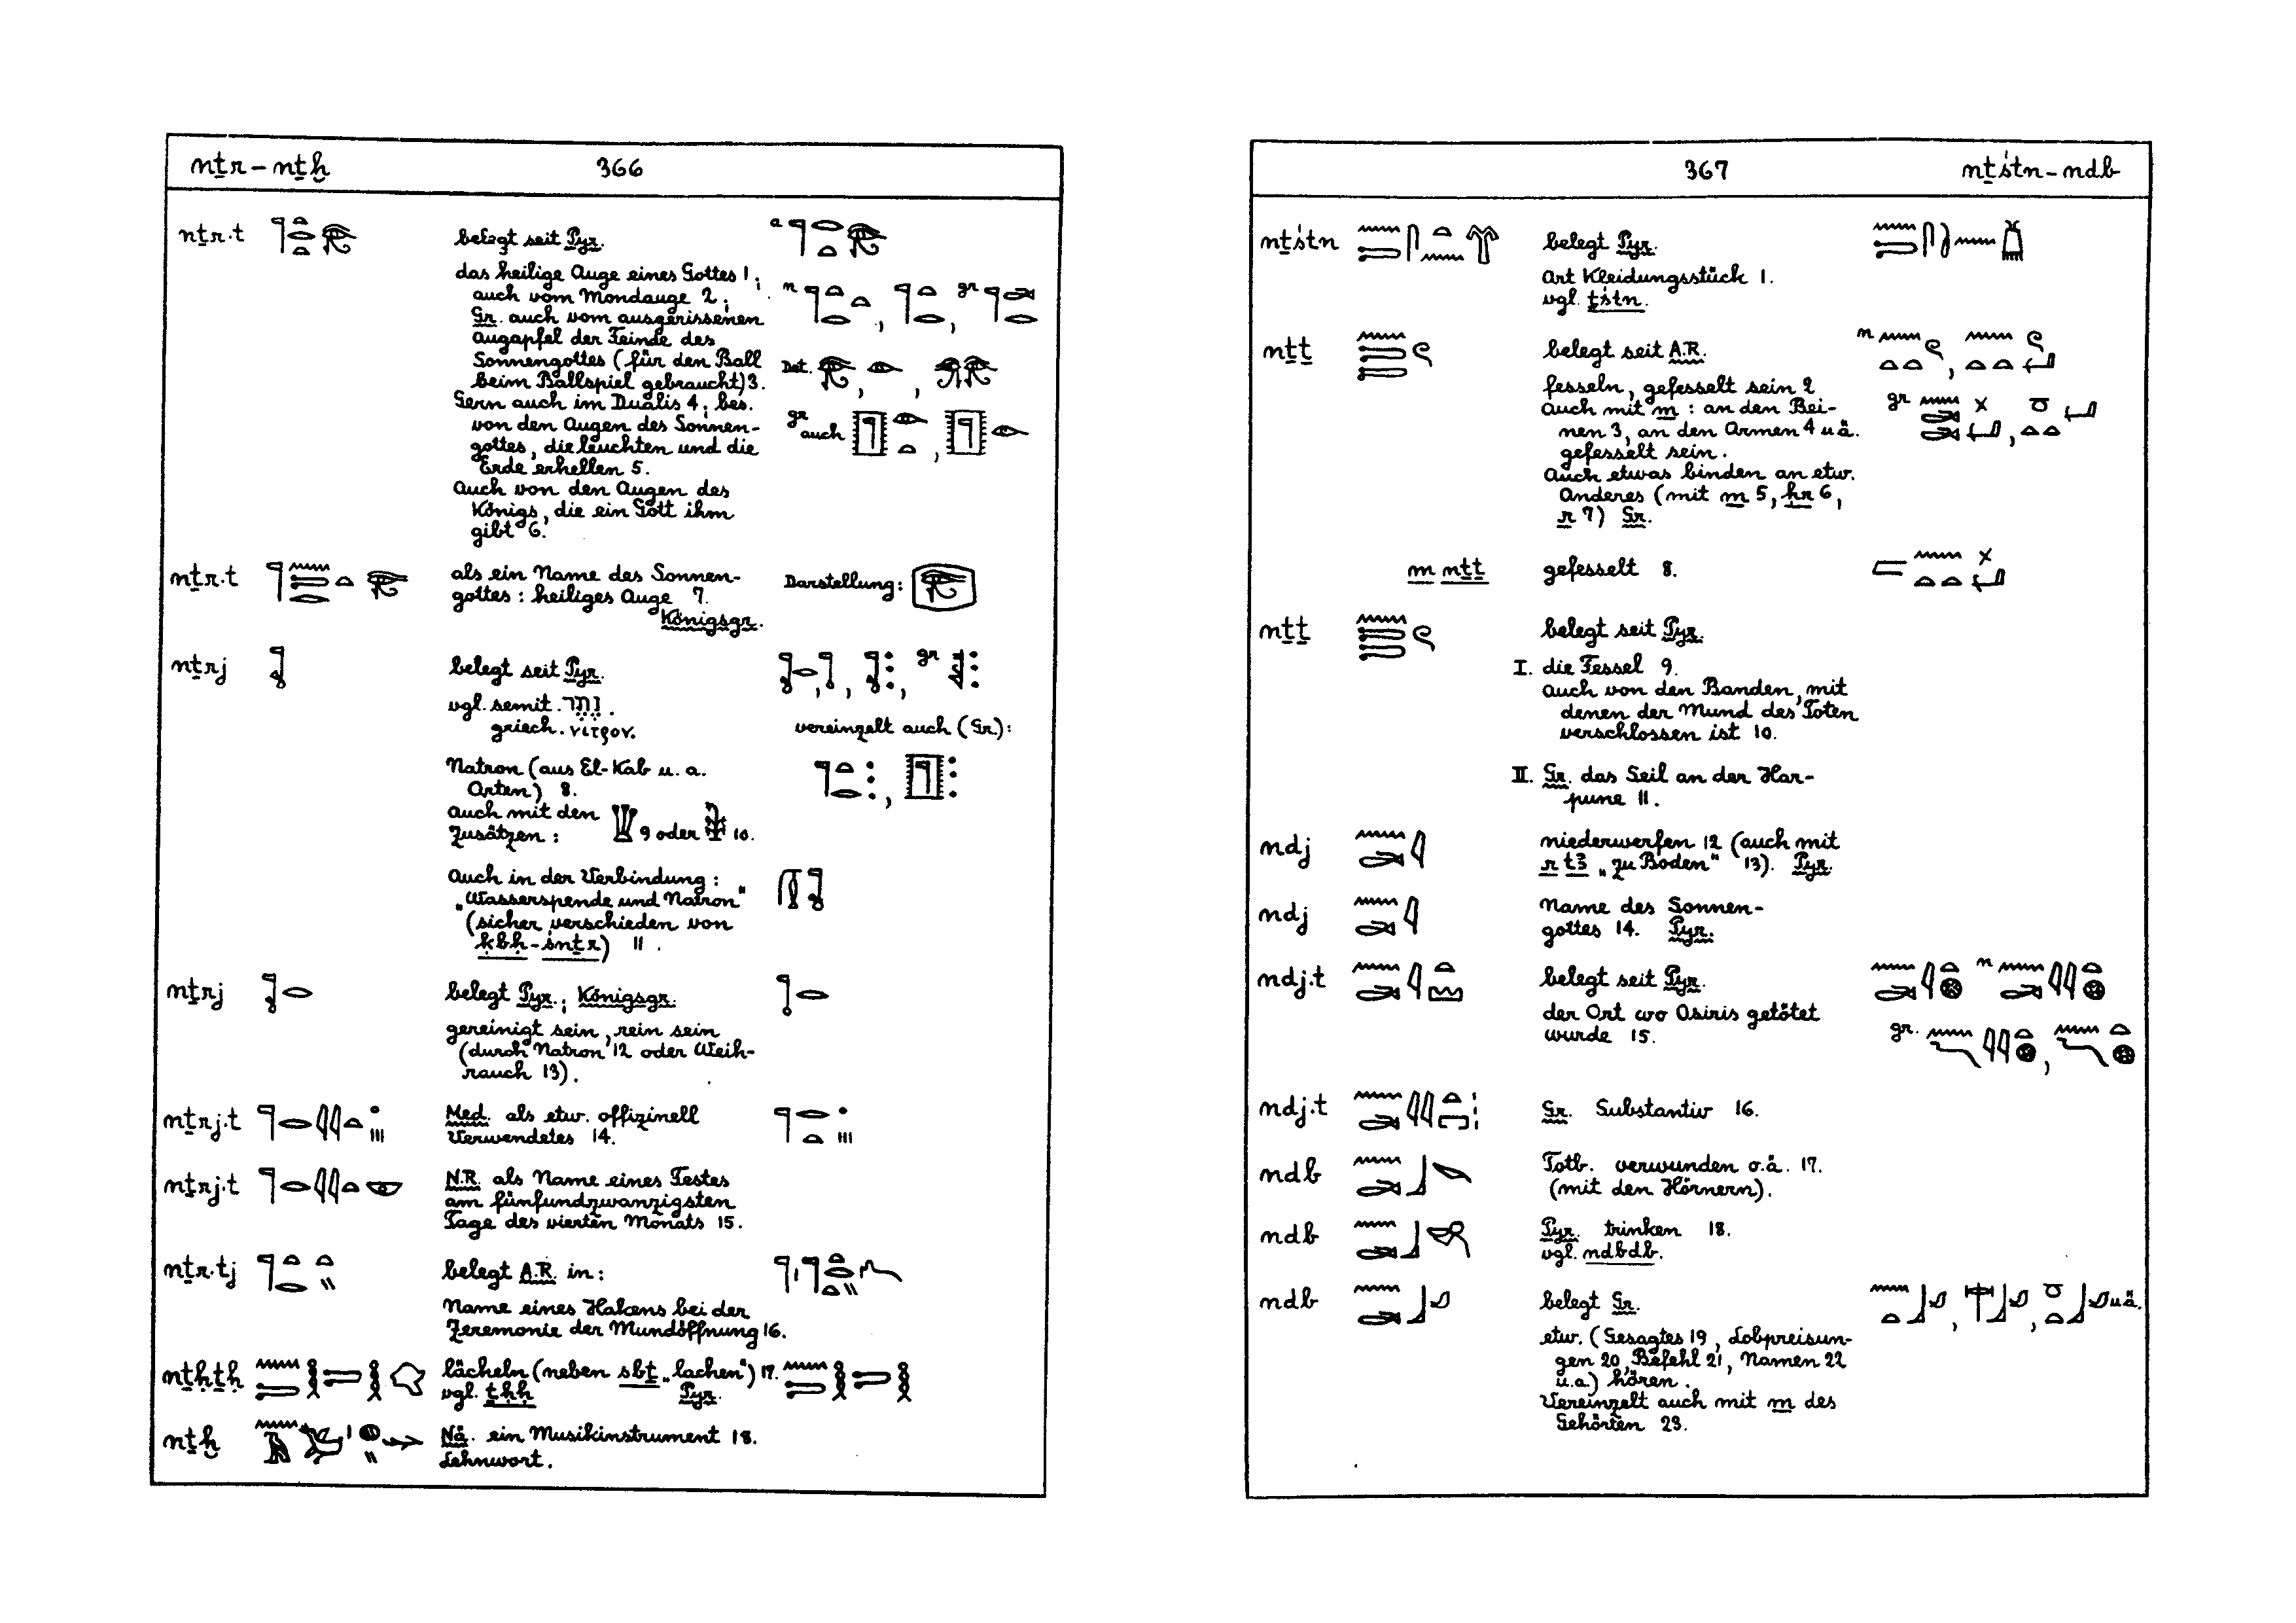 nṯr – nṯḫ 366
nṯr.t belegt seit Pyr.
das heilige Auge eines Gottes 1;
auch vom Mondauge 2;
Gr. auch vom ausgerissenen
Augapfel der Feinde des
Sonnengottes (für den Ball
beim Ballspiel gebraucht) 3.
Gern auch im Dualis 4; bes.
von den Augen des Sonnen-
gottes, die leuchten und die
Erde erhellen 5.
Auch von den Augen des
Königs, die ein Gott ihm
gibt 6.
a
n gr
Det.
gr auch
nṯr.t als ein Name des Sonnen-
gottes: heiliges Auge 7.
Königsgr.
Darstellung:
nṯrj belegt seit Pyr.
vgl. semit. נֶתֶר.
griech. νίτρον.
gr
vereinzelt auch (Gr.):
Natron (aus El-Kab u. a.
Orten) 8.
auch mit den
Zusätzen: 9 oder 10.
Auch in der Verbindung:
„Wasserspende und Natron"
(sicher verschieden von
ḳbḥ-śnṯr) 11.
nṯrj belegt Pyr.; Königsgr.
gereinigt sein, rein sein
(durch Natron 12 oder Weih-
rauch 13).
nṯrj.t Med. als etw. offizinell
Verwendetes 14.
nṯrj.t N.R. als Name eines Festes
am fünfundzwanzigsten
Tage des vierten Monats 15.
nṯr.tj belegt A.R. in:
Name eines Hakens bei der
Zeremonie der Mundöffnung 16.
nṯḥṯḥ lächeln (neben sbṯ „lachen") 17.
vgl. ṯḥḥ Pyr.
nṯḫ Nä. ein Musikinstrument 18.
Lehnwort.
367 nṯśtn – ndb
nṯśtn belegt Pyr.
Art Kleidungsstück 1.
vgl. ṯśtn.
nṯṯ belegt seit A.R. n
fesseln, gefesselt sein 2
Auch mit m: an den Bei-
nen 3, an den Armen 4 u ä.
gefesselt sein.
Auch etwas binden an etw.
Anderes (mit m 5, ḥr 6,
r 7) Gr.
gr
m nṯṯ gefesselt 8.
nṯṯ belegt seit Pyr.
I. die Fessel 9.
auch von den Banden, mit
denen der Mund des Toten
verschlossen ist 10.
II. Gr. das Seil an der Har-
pune 11.
ndj niederwerfen 12 (auch mit
r tꜣ „zu Boden" 13). Pyr.
ndj Name des Sonnen-
gottes 14. Pyr.
ndj.t belegt seit Pyr. n
der Ort wo Osiris getötet
wurde 15.
gr.
ndj.t Gr. Substantiv 16.
ndb Totb. verwunden o.ä. 17.
(mit den Hörnern).
ndb Pyr. trinken 18.
vgl. ndbdb.
ndb belegt Gr. u ä.
etw. (Gesagtes 19, Lobpreisun-
gen 20, Befehl 21, Namen 22
u.a.) hören.
Vereinzelt auch mit m des
Gehörten 23.